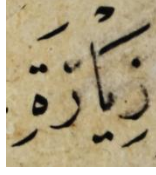 زِيَارَةِ